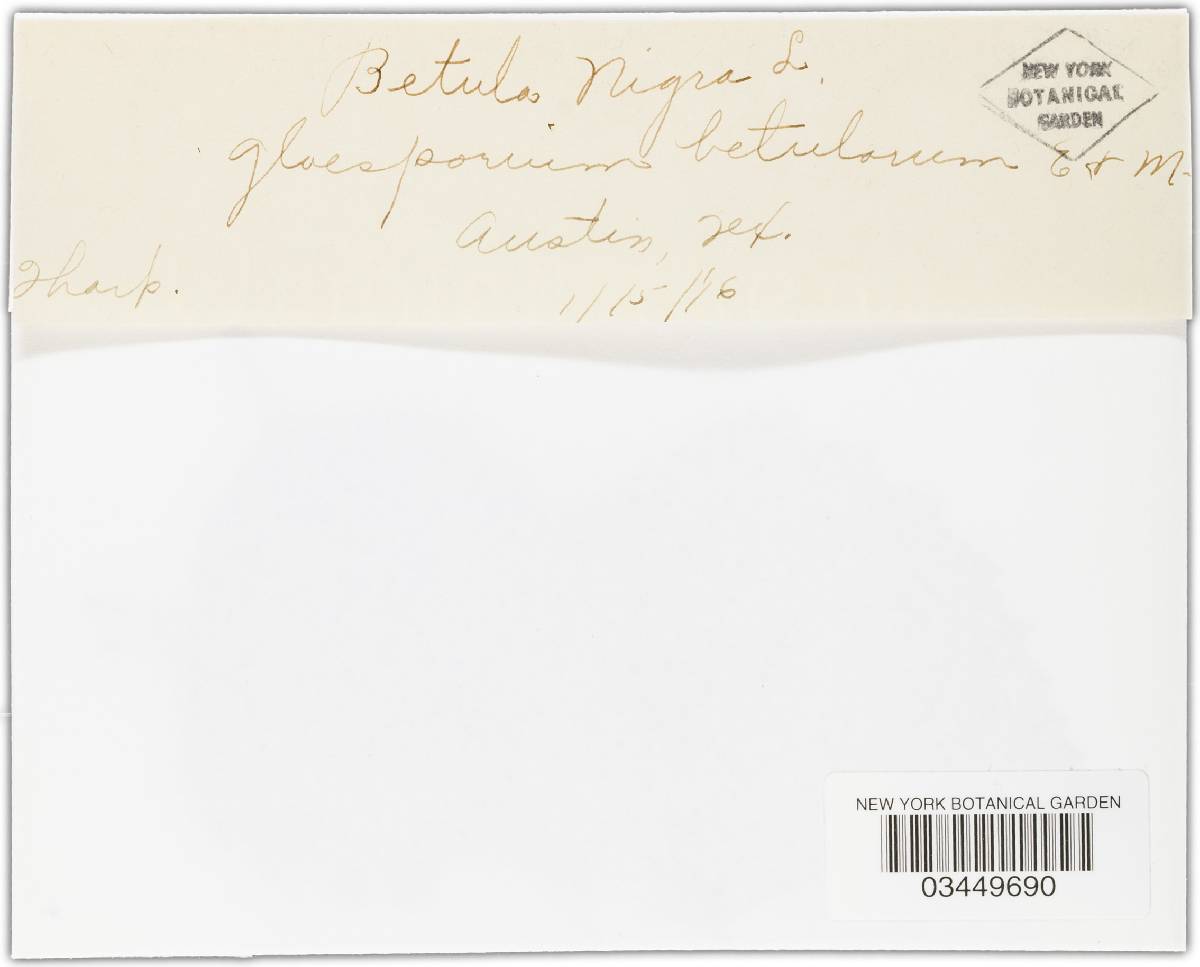 Betula Nigra L.
NEW YORK
BOTANICAL
GARDEN
Gloesporium betularum E & M.
Austin, Tex.
Tharp.
1/15/16
NEW YORK BOTANICAL GARDEN
03449690